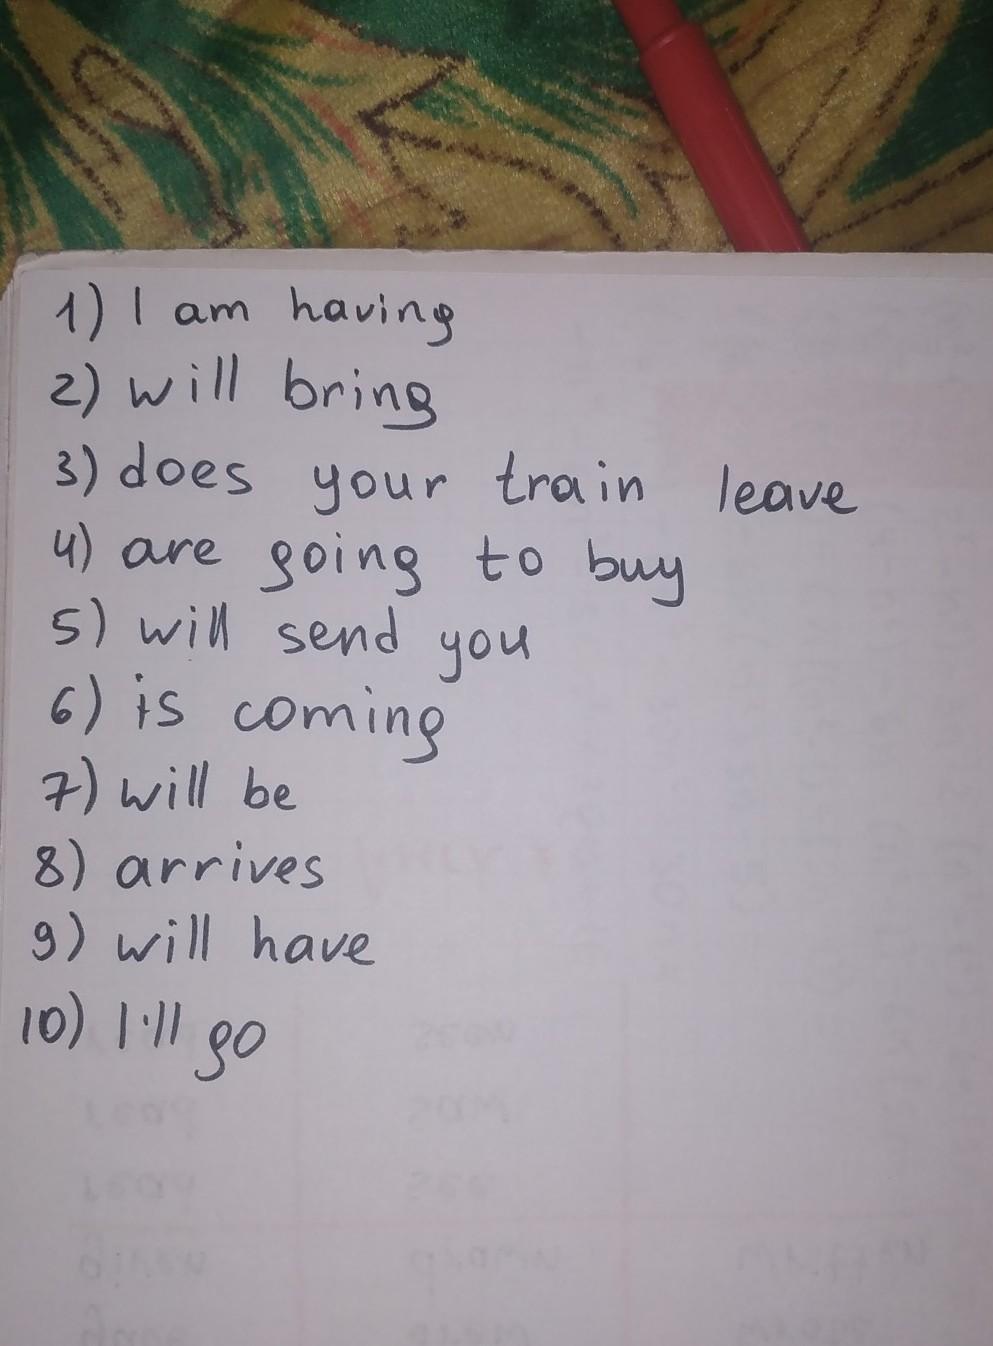 1) I am having
2) will bring
3) does your train leave
4) are going to buy
5) will send you
6) is coming
7) will be
8) arrives
9) will have
10) I'll go